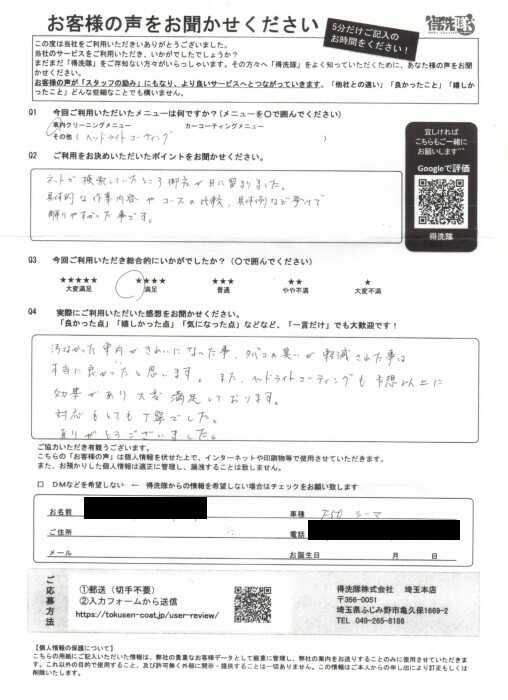 お客様の声をお聞かせください
5分だけご記入の
お時間をください！
得洗隊
この度は当社をご利用いただきありがとうございました。
当社のサービスをご利用いただき、いかがでしたでしょうか？
まだまだ「得洗隊」をご存知ない方がいらっしゃいます。その方々へ「得洗隊」をよく知っていただくために、あなた様の声をお聞かせください。
お客様の声が「スタッフの励み」にもなり、より良いサービスへとつながっていきます。「他社との違い」「良かったこと」「嬉しかったこと」どんな些細なことでも構いません。
Q1 今回ご利用いただいたメニューは何ですか？（メニューを〇で囲んでください）
車内クリーニングメニュー カーコーティングメニュー
その他（ ヘッドライトコーティング ）
宜しければ
こちらもご一緒に
お願いします^^
Googleで評価
得洗隊
Q2 ご利用をお決めいただいたポイントをお聞かせください。
ネットで検索していたところ御社が目に留まりました。
具体的な作業内容やコースの比較、具体例など挙げて
解りやすかった事です。
Q3 今回ご利用いただき総合的にいかがでしたか？（〇で囲んでください）
★★★★★ ★★★★ ★★★ ★★ ★
大変満足 満足 普通 やや不満 大変不満
Q4 実際にご利用いただいた感想をお聞かせください。
「良かった点」「嬉しかった点」「気になった点」などなど、「一言だけ」でも大歓迎です！
汚なかった車内がきれいになった事、タバコの臭いが軽減された事は
本当に良かったと思います。また、ヘッドライトコーティングも予想以上に
効果があり大変満足しております。
対応もとても丁寧でした。
ありがとうございました。
ご協力いただき有難うございます。
こちらの「お客様の声」は個人情報を伏せた上で、インターネットや印刷物等で使用させていただきます。
また、お預かりした個人情報は適正に管理し、漏洩することは致しません。
□ DMなどを希望しない ー 得洗隊からの情報を希望しない場合はチェックをお願い致します
お名前 車種 シーマ
ご住所 電話
メール お誕生日 月 日
ご応募方法
①郵送（切手不要）
②入力フォームから送信
https://tokusen-coat.jp/user-review/
得洗隊株式会社 埼玉本店
〒356-0051
埼玉県ふじみ野市亀久保1669-2
TEL 049-265-8186
【個人情報の保護について】
こちらの用紙にご記入いただいた情報は、弊社の貴重なお客様データとして厳重に管理し、弊社の案内をお送りすることのみに使用させていただきます。これ以外の目的で使用すること、及び許可無く外部に開示・提供することは一切ありません。この情報はご本人からの申し出により訂正もしくは削除いたします。